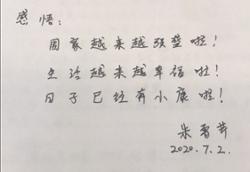 感悟：
国家越来越强盛啦！
生活越来越幸福啦！
日子已经有小康啦！
朱
2020.7.2.